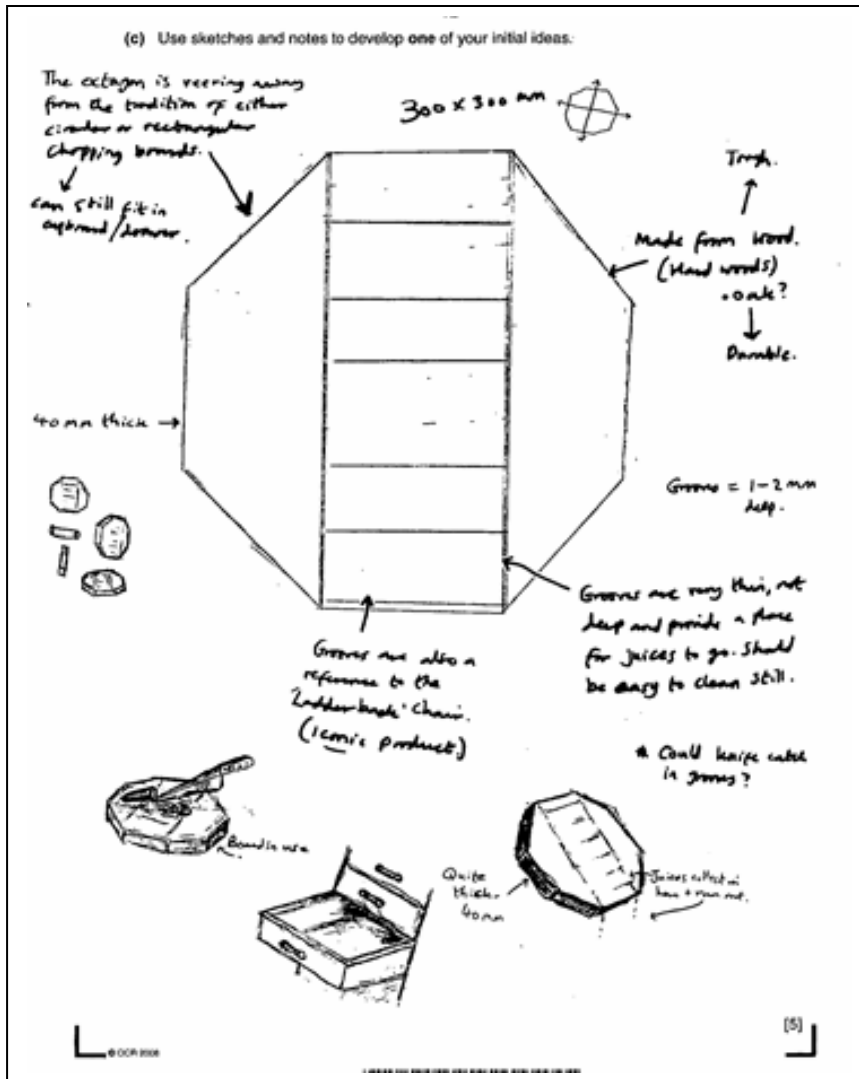 (c) Use sketches and notes to develop one of your initial ideas.
The octagon is veering away
from the tradition of either
circular or rectangular
chopping boards.
can still fit in
cupboard/drawer.
300 x 300 mm
Tough.
Made from wood.
(Hard woods)
. oak?
Durable.
40mm thick
Grooves = 1-2 mm
deep.
Grooves are very thin, not
deep and provide a place
for juices to go. Should
be easy to clean still.
Grooves are also a
reference to the
'Ladder back' chair.
(iconic product)
* Could knife catch
in grooves?
Board in use
Quite
thick-
40mm
Juices collect in
here + run out.
[5]
© OCR 2008